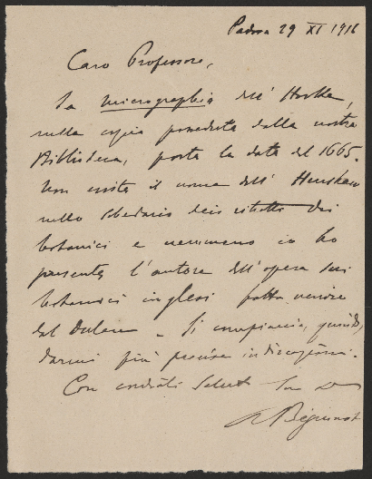 Padova 29 XI 1916
Caro Professore,
La micrographia dell' Hooke,
nella copia posseduta dalla nostra
Biblioteca, porta la data del 1665.
Non esiste il nome dell' Henshaw
nello schedario dei ritratti dei
botanici e nemmeno io ho
presente l'autore dell'opera sui
botanici inglesi fatta venire
dal  . Si compiaccia, quindi,
darmi più precise indicazioni.
Con cordiali saluti Suo
Béguinot